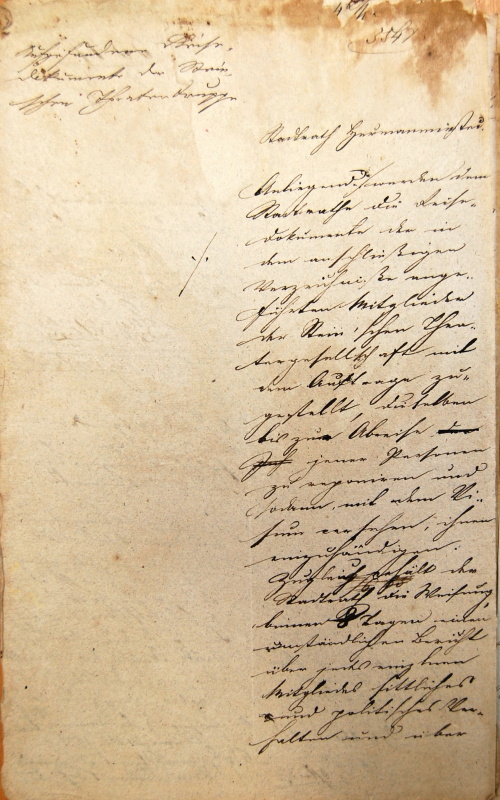 5547
Dokumente der Stein-
schen Theatertruppe
Stadtrath Hermannstadt.
Anliegend werden dem
Stadtrathe die Reise-
dokumente der in
dem anschließigen
Verzeichniße ange-
führten Mitglieder
der Stein'schen Thea-
tergesellschaft mit
dem Auftrage zu-
gestellt, dieselben
bis zur Abreise
jener Personen
zu reponiren und
sodann mit dem Vi-
sum versehen, ihnen
einzuhändigen.
Zugleich erhält der
Stadtrath die Weisung
binnen 8 Tagen einen
umständlichen Bericht
über jedes einzelnen
Mitgliedes sittliches
und politisches Ver-
halten und über